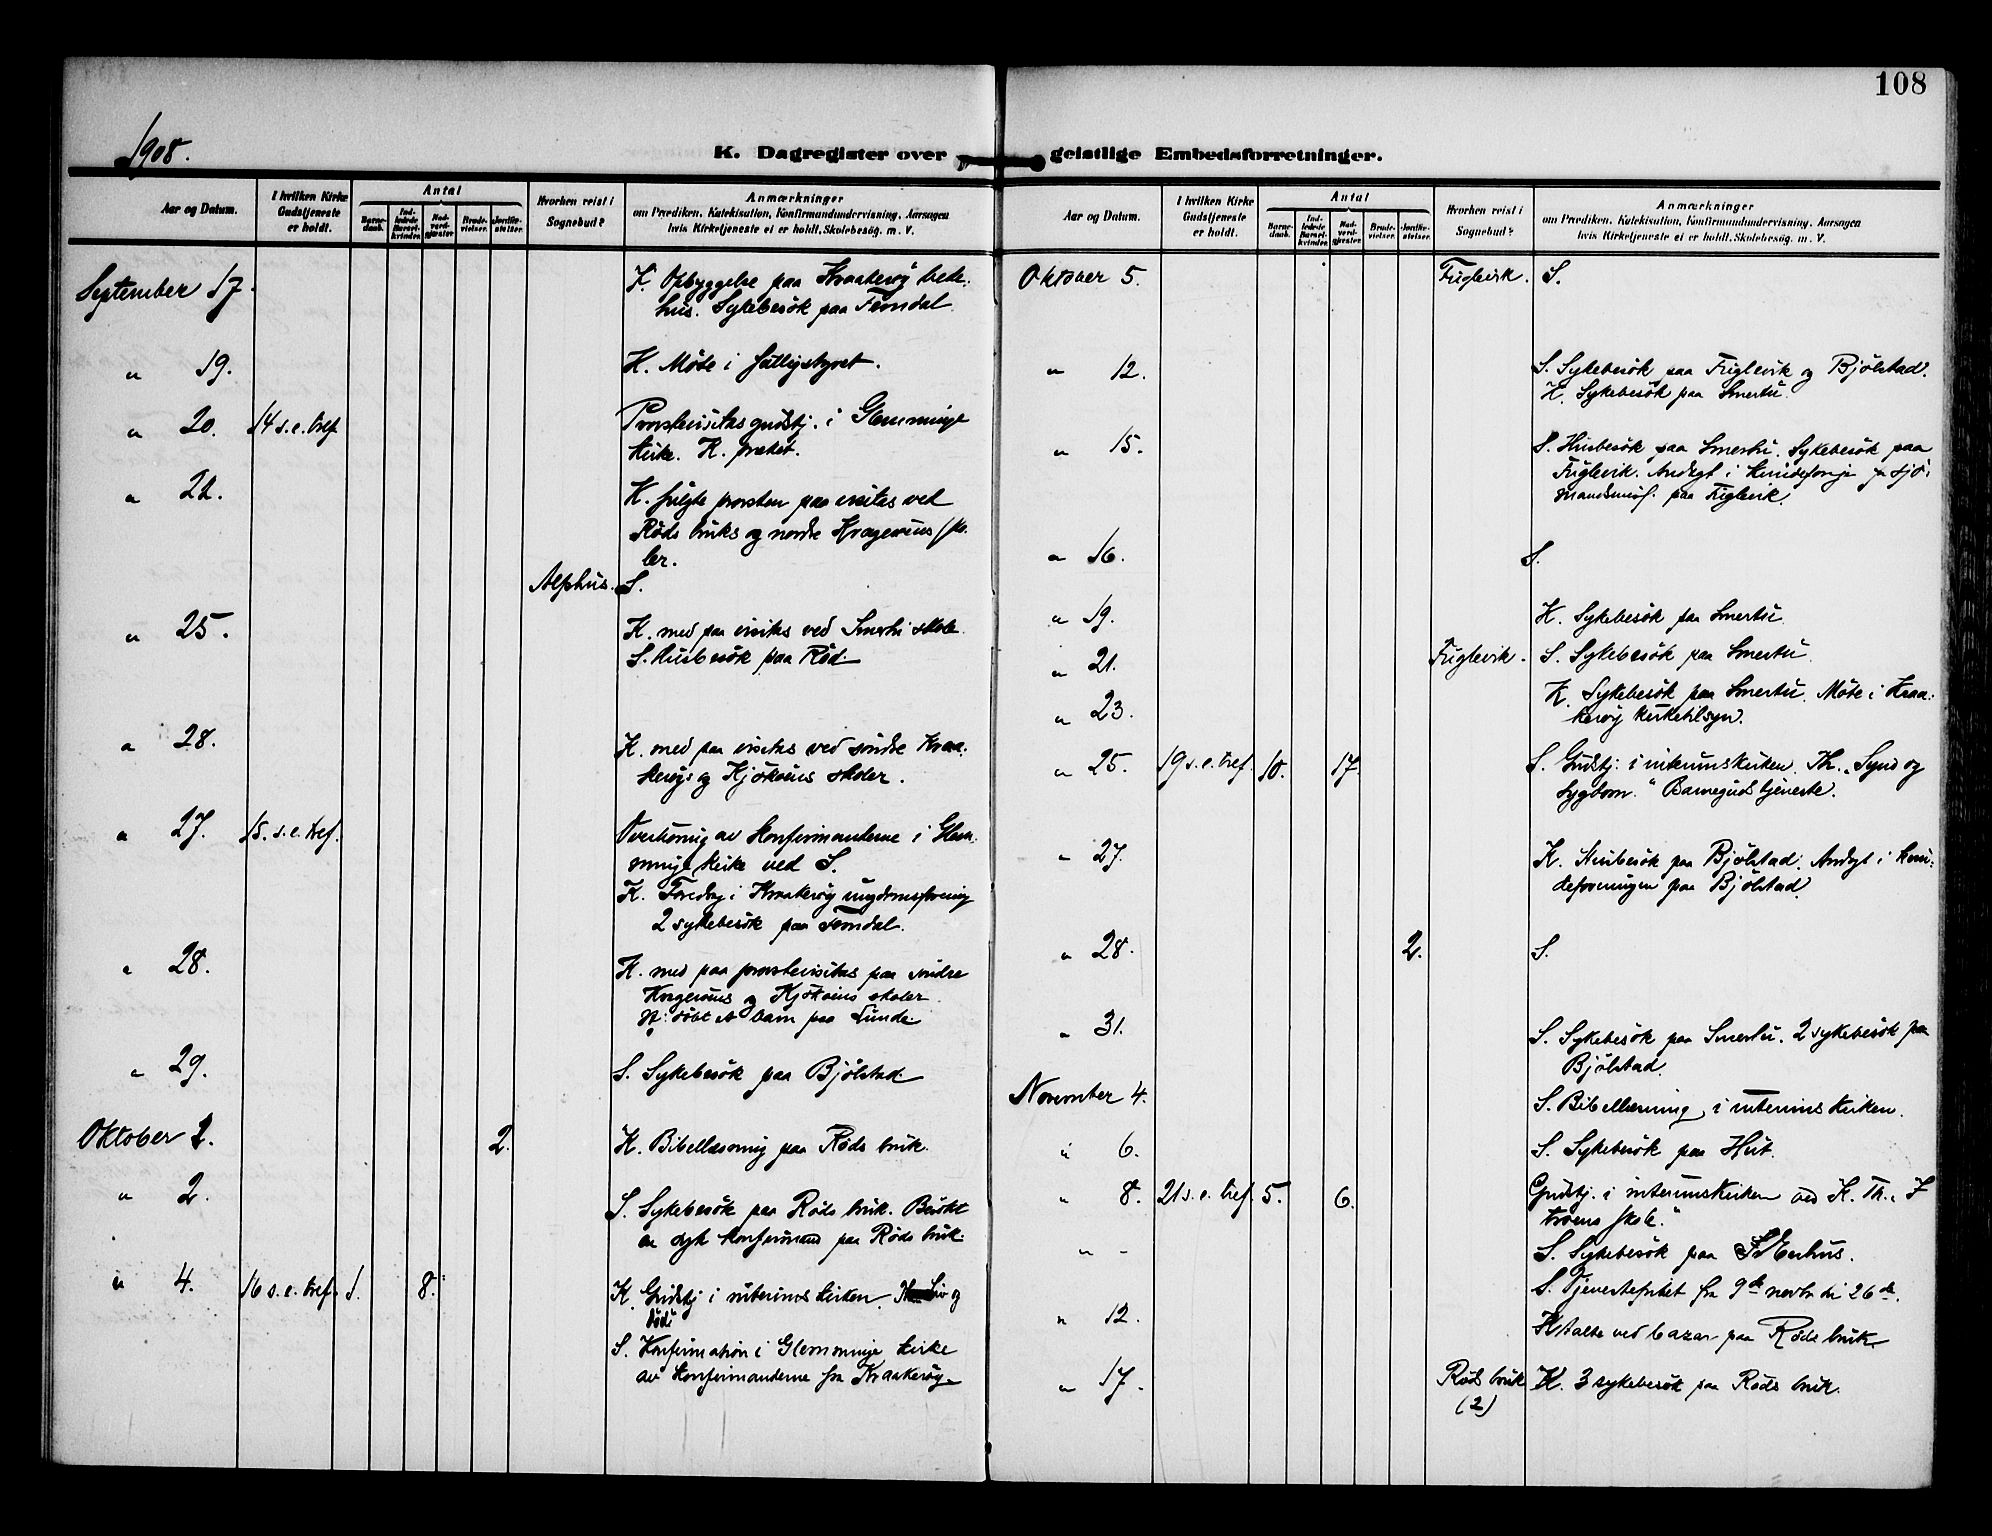 108
1908.
K. Dagregister over geistlige Embedsforretninger.
Aar og Datum.
I hvilken Kirke Gudstjeneste er holdt.
Antal
Barnedaab.
Indledede Barselkvinder.
Nadverdgjæster.
Brudevielser.
Jordfæstelser.
Hvorhen reist i Sognebud?
Anmærkninger
om Prædiken, Katekisation, Konfirmandundervisning, Aarsagen
hvis Kirketjeneste ei er holdt, Skolebesøg. m. V.
September 17. K. Opbyggelse paa Kraakerøy bede-
hus. Sykebesök paa Femdal.
" 19. K. Møte i fattigstyret.
" 20. 14 s. e. tref. Provstevisitasgudstj. i Glemminge
kirke. K. præket.
" 22. K. fulgte provsten paa visitas ved
Røds bruks og nordre Kragerøens sko-
ler.
Alshus. S.
" 25. K. med paa visitas ved Smertu skole.
S. Husbesök paa Rød.
" 28. K. med paa visitas ved söndre Kraa-
kerøys og Kjökøens skoler.
" 27. 15. s. e. tref. Overhöring av konfirmanderne i Glem-
minge kirke ved S.
K. Foredrag i Kraakerøy ungdomsforening
2 sykebesök paa Femdal.
" 28. K. med paa provstevisitas paa söndre
og Kjökøens skoler.
döbt et barn paa Lunde.
" 29. S. Sykebesök paa Bjölstad.
Oktober 2. 2. K. Bibellæsning paa Røds bruk.
" 2. S. Sykebesök paa Røds bruk. Besökt
en syk konfirmand paa Røds bruk.
" 4. 16 s. e. tref. 1. 8. K. Gudstj. i interimskirken. Liv og
död
S. Konfirmation i Glemminge kirke
av konfirmanderne fra Kraakerøy.
Aar og Datum.
I hvilken Kirke Gudstjeneste er holdt.
Antal
Barnedaab.
Indledede Barselkvinder.
Nadverdgjæster.
Brudevielser.
Jordfæstelser.
Hvorhen reist i Sognebud?
Anmærkninger
om Prædiken, Katekisation, Konfirmandundervisning, Aarsagen
hvis Kirketjeneste ei er holdt, Skolebesøg. m. V.
Oktober 5. Fuglevik. S.
" 12. S. Sykebesök paa Fuglevik og Bjölstad.
K. Sykebesök paa Smertu.
" 15. S. Husbesök paa Smertu. Sykebesök paa
Fuglevik. Andagt i kvindeforening f. sjö-
mandsmis. paa Fuglevik.
" 16. S.
" 19. K. Sykebesök paa Smertu.
" 21. Fuglevik. S. Sykebesök paa Smertu.
" 23. K. Sykebesök paa Smertu. Møte i Kraa-
kerøy kirketilsyn.
" 25. 19 s. e. tref. 10. 17. S. Gudstj. i interimskirken. Th. "Synd og
sygdom." Barnegudstjeneste.
" 27. K. Husbesök paa Bjölstad. Andagt i kvin-
deforeningen paa Bjölstad.
" 28. 2. S.
" 31. S. Sykebesök paa Smertu. 2 sykebesök paa
Bjölstad.
November 4. S. Bibellæsning i interimskirken.
" 6. S. Sykebesök paa Hut.
" 8. 21 s. e. tref. 5. 6. Gudstj. i interimskirken ved K. Th. "I
troens skole."
" - S. Sykebesök paa Enhus.
S. Tjenestefrihet fra 9de novbr. til 26de.
" 12. K. talte ved bazar paa Røds bruk.
" 17. Røds bruk (2) K. 3 sykebesök paa Røds bruk.